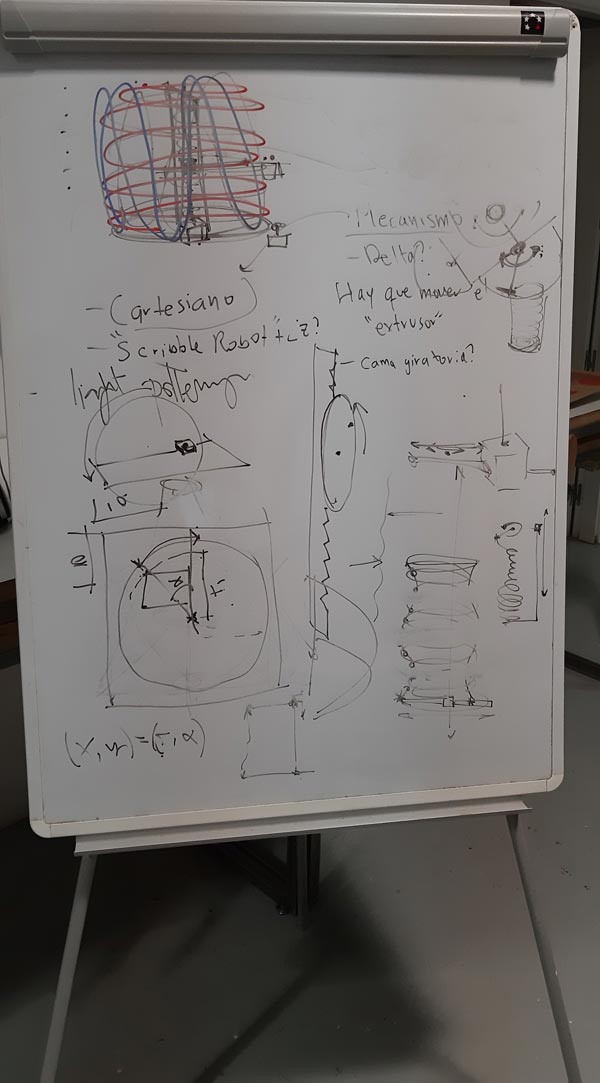 Mecanismo:
- Delta?
Hay que mover el
"extrusor"
- Cartesiano
- "Scribble Robot" + ¿z?
- Cama giratoria?
- light pottery
r, α
(x, y) = (r, α)